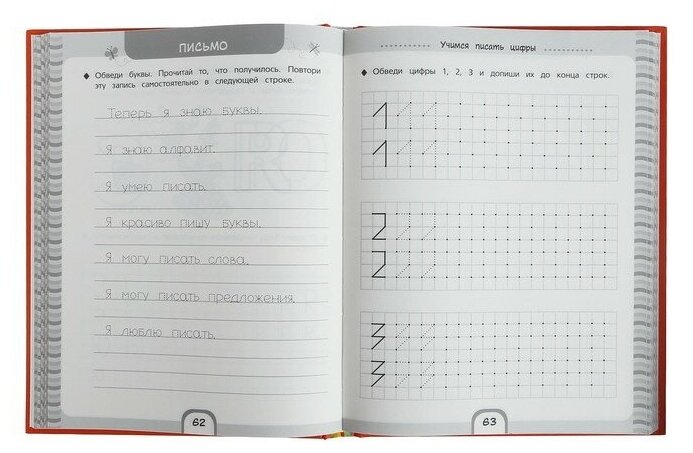 ПИСЬМО
Обведи буквы. Прочитай то, что получилось. Повтори
эту запись самостоятельно в следующей строке.
Теперь я знаю буквы.
Я знаю алфавит.
Я умею писать.
Я красиво пишу буквы.
Я могу писать слова.
Я могу писать предложения.
Я люблю писать.
62
Учимся писать цифры
Обведи цифры 1, 2, 3 и допиши их до конца строк.
1 1 1
1 1 1
2 2 2
2 2 2
3 3 3
3 3 3
63